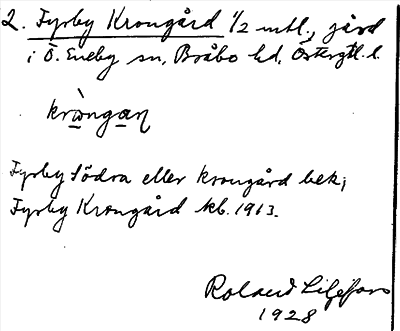 2. Fyrby Krongård 1/2 mtl., gård
i Ö. Eneby sn, Bråbo hd, Östergtl. l.
Fyrby Södra eller krongård bek;
Fyrby Krongård kb. 1913.
Roland Liljefors
1928